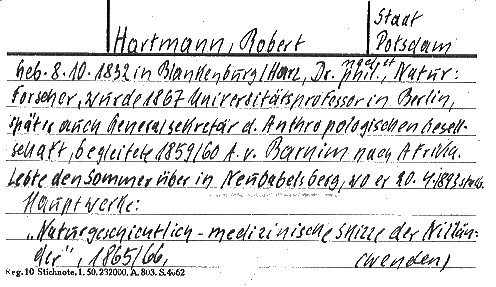 Staat
Hartmann, Robert Potsdam
Geb. 8.10.1832 in Blankenburg/Harz, Dr. med. et phil., Natur:
forscher, wurde 1867 Universitätsprofessor in Berlin,
später auch Generalsekretär d. Anthropologischen Gesell-
schaft, begleitete 1859/60 A. v. Barnim nach Afrika.
Lebte den Sommer über in Neubabelsberg, wo er 20.4.1893 starb.
Hauptwerke:
„Naturgeschichtlich-medizinische Skizze der Nillän-
der", 1865/66, (wenden)
Reg. 10 Stichnote. 1. 50. 232000. A. 803. S. 4462